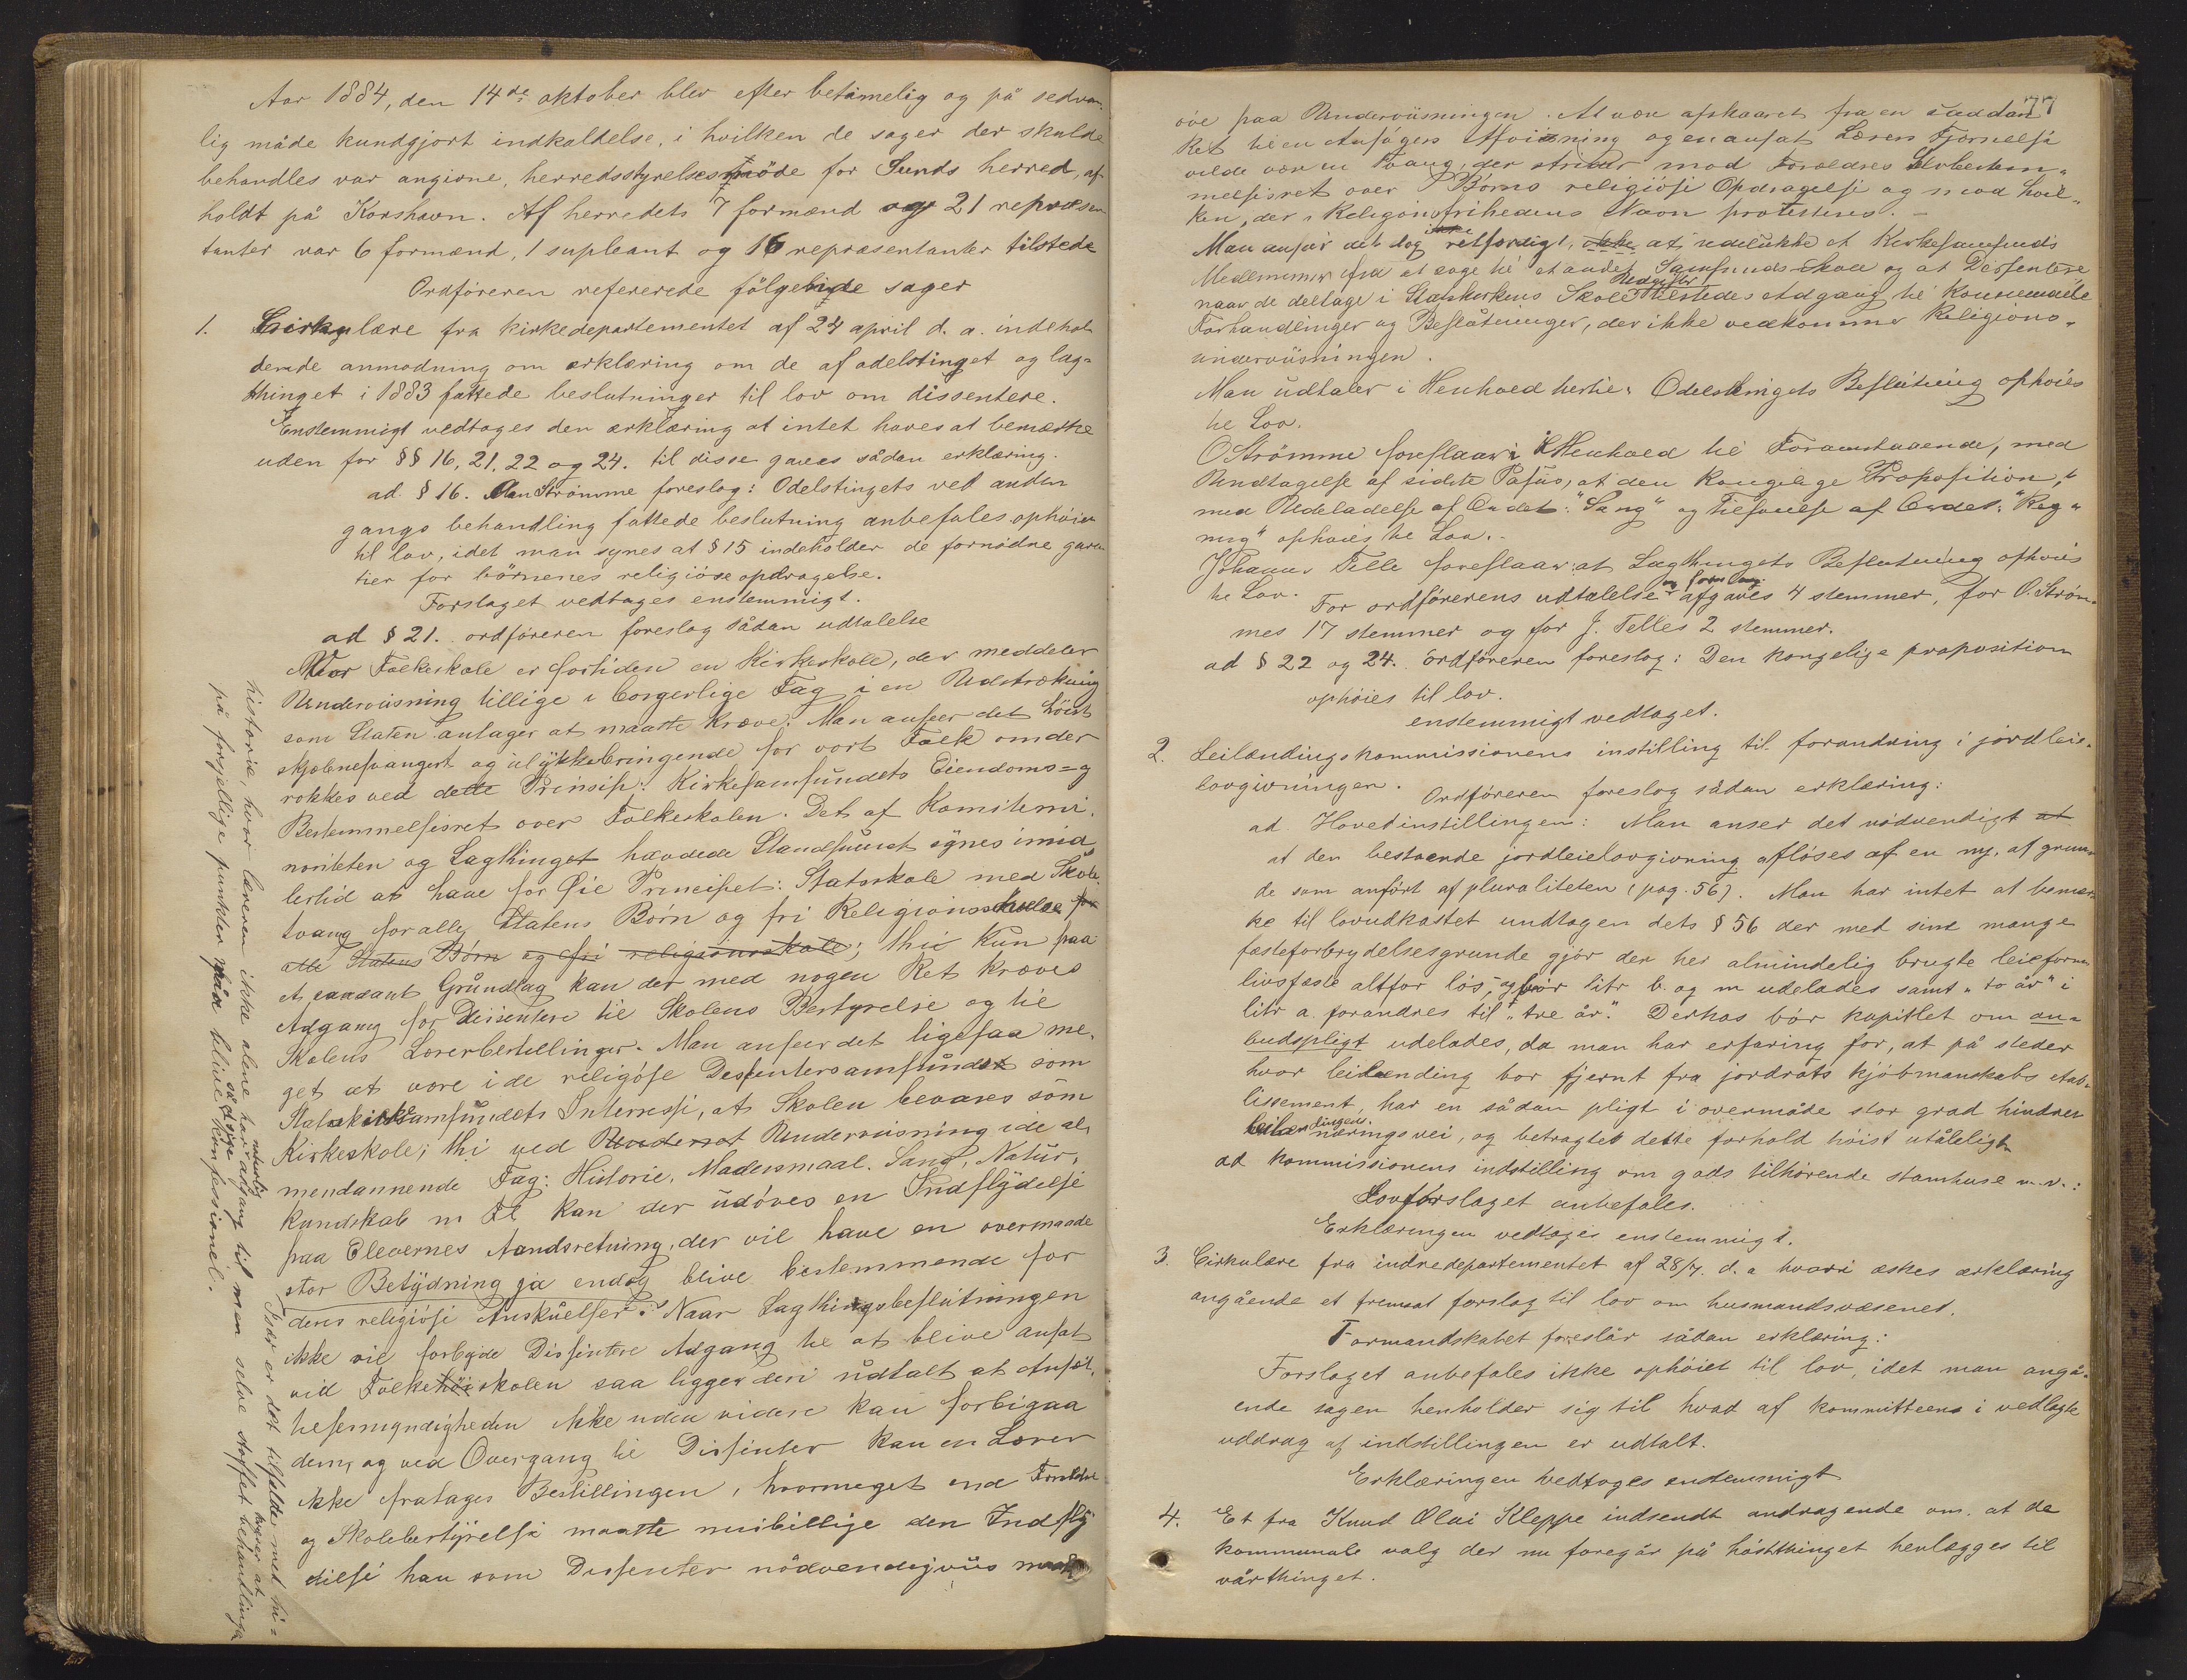 Aar 1884, den 14de oktober blev efter betimelig og på sedvan
lig måde kundgjort indkaldelse, i hvilken de sager der skulde
behandles var angivne, herredsstyrelsesmöde for Sunds herred, af
holdt på Korshavn. Af herredets 7 formænd og 21 repræsen
tanter var 6 formænd, 1 supleant og 16 repræsentanter tilstede
Ordföreren refererede fölgende sager
1. Cirkulære fra kirkedepartementet af 24 april d. a. indehol
dende anmodning om erklæring om de af odelstinget og lag-
thinget i 1883 fattede beslutninger til lov om dissentere.
Enstemmigt vedtoges den erklæring at intet haves at bemærke
uden for §§ 16, 21, 22 og 24. til disse gaves sådan erklæring.
ad § 16. Ole Strömme foreslog: Odelstingets ved anden
gangs behandling fattede beslutning anbefales ophöiet
til lov, idet man synes at § 15 indeholder de fornödne garan
tier for börnenes religiöse opdragelse.
Forslaget vedtages enstemmigt.
ad § 21. ordföreren foreslog sådan udtalelse
Vor Folkeskole er fortiden en Kirkeskole, der meddeler
Underviisning tillige i borgerlige Fag i en Udstrækning
som Staten antager at maatte kræve. Man anseer det höist
skjæbnesvangert og ulykkebringende for vort Folk om der
rokkes ved dette Prinsip: Kirkesamfundets Eiendoms- og
Bestemmelsesret over Folkeskolen. Det af Komitemi-
noriteten og Lagthinget hævdede Standpunct synes imid
lertid at have for Øie Principet: Statsskole med Skole-
tvang for alle Statens Börn og fri Religionsskole for
alle Statens Börn og fri religionsskole; thi kun paa
et saadant Grundlag kan der med nogen Ret kræves
Adgang for Dissentere til Skolens Bestyrelse og til
Skolens Lærerbestillinger. Man anseer det ligesaa me-
get at være i de religiöse Dissentersamfundet som
Statskirkesamfundets Interesse, at Skolen bevares som
Kirkeskole; thi ved Underret Underviisning i de al-
mendannende Fag: Historie, Modersmaal, Sang, Natur-
kundskab m fl kan der udöves en Indflydelse
paa Elevernes Aandsretning, der vil have en overmaade
stor Betydning ja endog blive bestemmende for
deres religiöse Anskuelser. Naar Lagthingsbeslutningen
ikke vil forbyde Dissentere Adgang til at blive ansat
ved Folkehöiskolen saa ligger deri udtalt at Ansæt-
telsesmyndigheden ikke uden videre kan forbigaa
dem, og ved Overgang til Dissenter kan en Lærer
ikke fratages Bestillingen, hvormeget end Forældre
og Skolebestyrelse maatte misbillige den Indfly
delse han som Dissenter nödvendigviis maatte
Især er det tilfælde med hi-
storie, hvor læreren ikke alene har naturlig adgang til men selve stoffet kræver at behandlinga
på forsjellige punkter må blive såatsige konfessionel.
77
öve paa Underviisningen. At være afskaaret fra en saadan
Ret til en Ansögers Afviisning og en ansat Lærers Fjernelse
vilde være en Tvang, der strider mod Forældres Selvbestem-
melsesret over Börns religiöse Opdragelse og mod hvil-
ken, der i Religionsfrihedens Navn protesteres. –
Man anser det dog ikke retfærdigt, ikke at udelukke et Kirkesamfunds
Medlemmer fra at söge til et andet Samfunds Skole og at Dissentere
naar de deltage i Statskirkens Skole Udgifter tilstedes Adgang til Kommunale
Forhandlinger og Beslutninger, der ikke vedkommer Religions-
underviisningen.
Man udtaler i Henhold hertil: Odelsthingets Beslutning ophöies
til Lov.
O Strömme foreslaar: i Henhold til Foranstaaende, med
Undtagelse af sidste Passus, at den kongelige Proposition,
med Udeladelse af Ordet: "Sang" og Tilföielse af Ordet: "Reg-
ning" ophöies til Lov.
Johannes Telle foreslaar: at Lagthingets Beslutning ophöies
til Lov.
For ordförerens udtalelse og forslag afgaves 4 stemmer, for O. Ström-
mes 17 stemmer og for J. Telles 2 stemmer.
ad § 22 og 24. ordföreren foreslog: Den kongelige proposition
ophöies til lov.
enstemmigt vedtaget.
2. Leilændingskommissionens instilling til forandring i jordleie-
lovgivningen.
Ordföreren foreslog sådan erklæring:
ad Hovedinstillingen: Man anser det nödvendigt at
at den bestående jordleielovgivning aflöses af en ny, af grun
de som anfört af pluraliteten (pag. 56). Man har intet at bemær
ke til lovudkastet undtagen dets § 56 der med sine mange
fæsteforbrydelsesgrunde gjör den her almindelig brugte leieform
livsfæste altfor lös, og bör litr b. og m udelades samt "to år" i
litr a. forandres til "tre år". Derhos bör kapitlet om an-
budspligt udelades, da man har erfaring for, at på steder
hvor leilænding bor fjernt fra jorddrots kjöbmandskabs etab-
lissement, har en sådan pligt i overmåde stor grad hindret
leilændingeds næringsvei, og betragtes dette forhold höist utåleligt
ad kommissionens indstilling om gods tilhörende stamhuse m. v.:
Lovforslaget anbefales.
Erklæringen vedtoges enstemmigt.
3. Cirkulære fra indredepartementet af 28/7. d. a hvori æskes erklæring
angående et fremsat forslag til lov om husmandsvæsenet.
Formandskabet foreslår sådan erklæring:
Forslaget anbefales ikke ophöiet til lov, idet man angå-
ende sagen henholder sig til hvad af kommitteens i vedlagte
uddrag af indstillingen er udtalt.
Erklæringen vedtoges enstemmigt
4. Et fra Knud Olai Kleppe indsendt andragende om. at de
kommunale valg der nu foregår på höstthinget henlægges til
vårthinget.